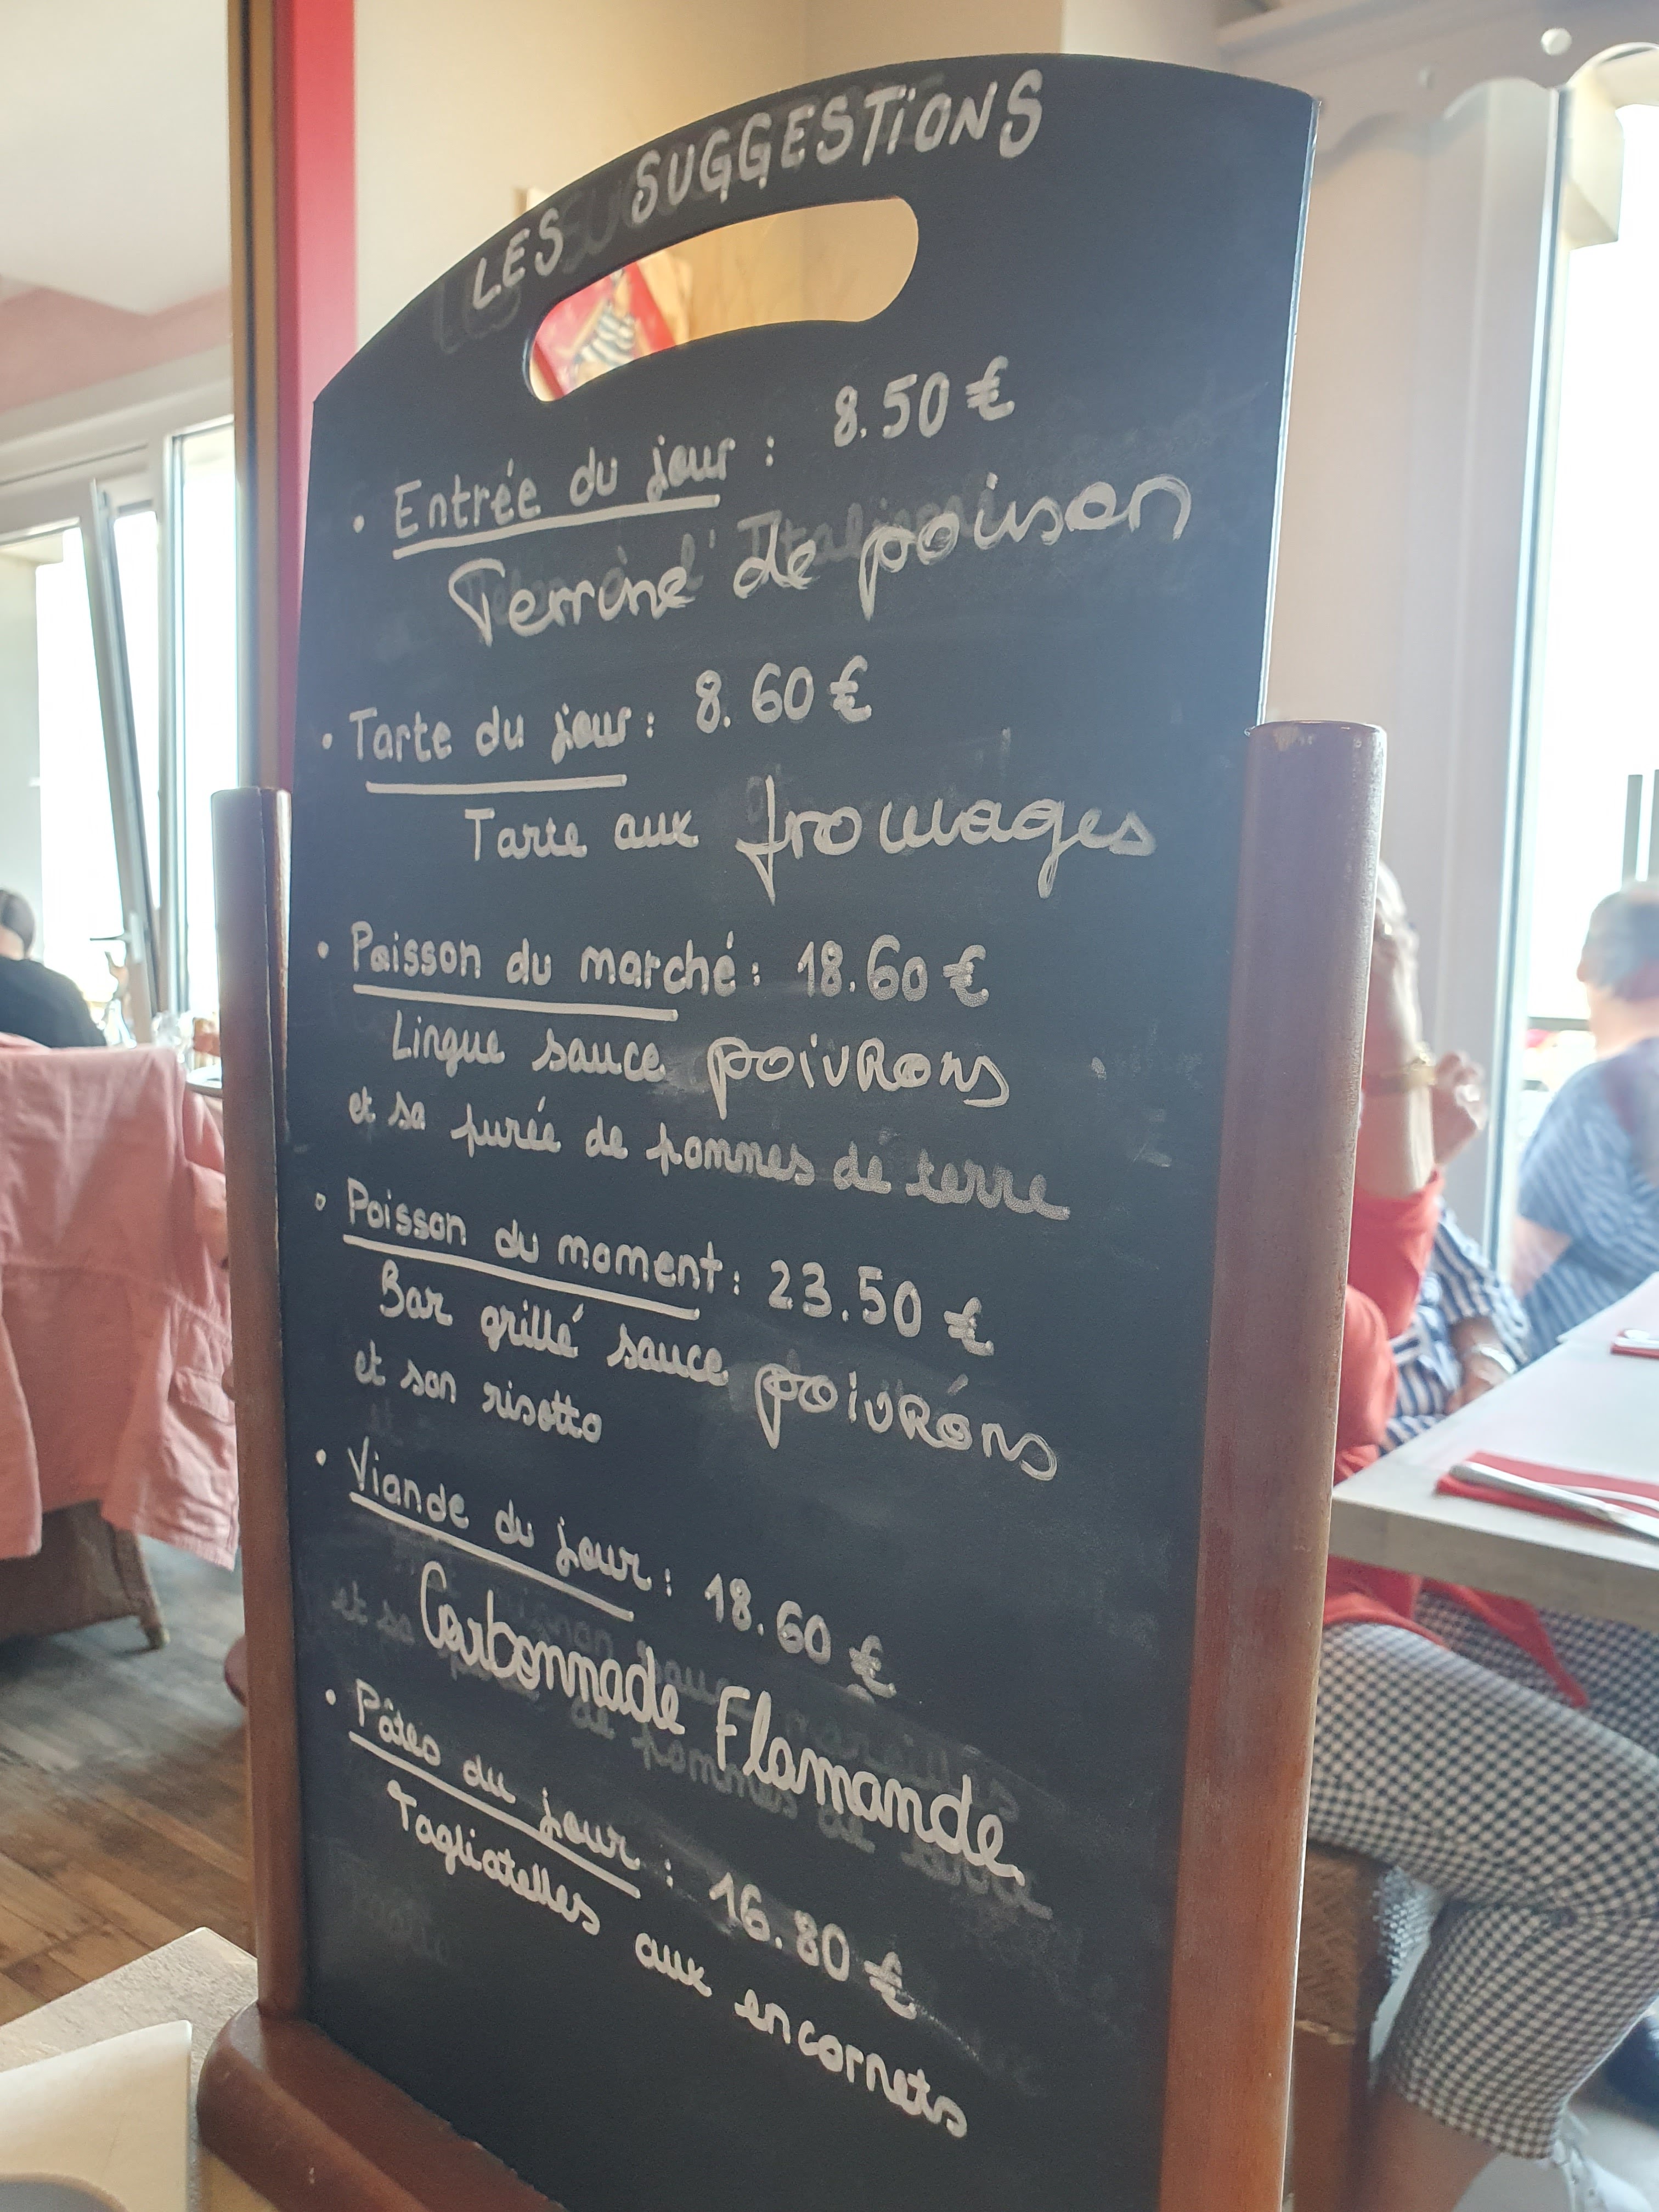 LES SUGGESTIONS
• Entrée du jour : 8.50 €
Terrine de poisson
• Tarte du jour : 8.60 €
Tarte aux fromages
• Poisson du marché : 18.60 €
Lingue sauce poivRons
et sa purée de pommes de terre
• Poisson du moment : 23.50 €
Bar grillé sauce poivRons
et son risotto
• Viande du jour : 18.60 €
Carbonnade Flamande
• Pâtes du jour : 16.80 €
Tagliatelles aux encornets